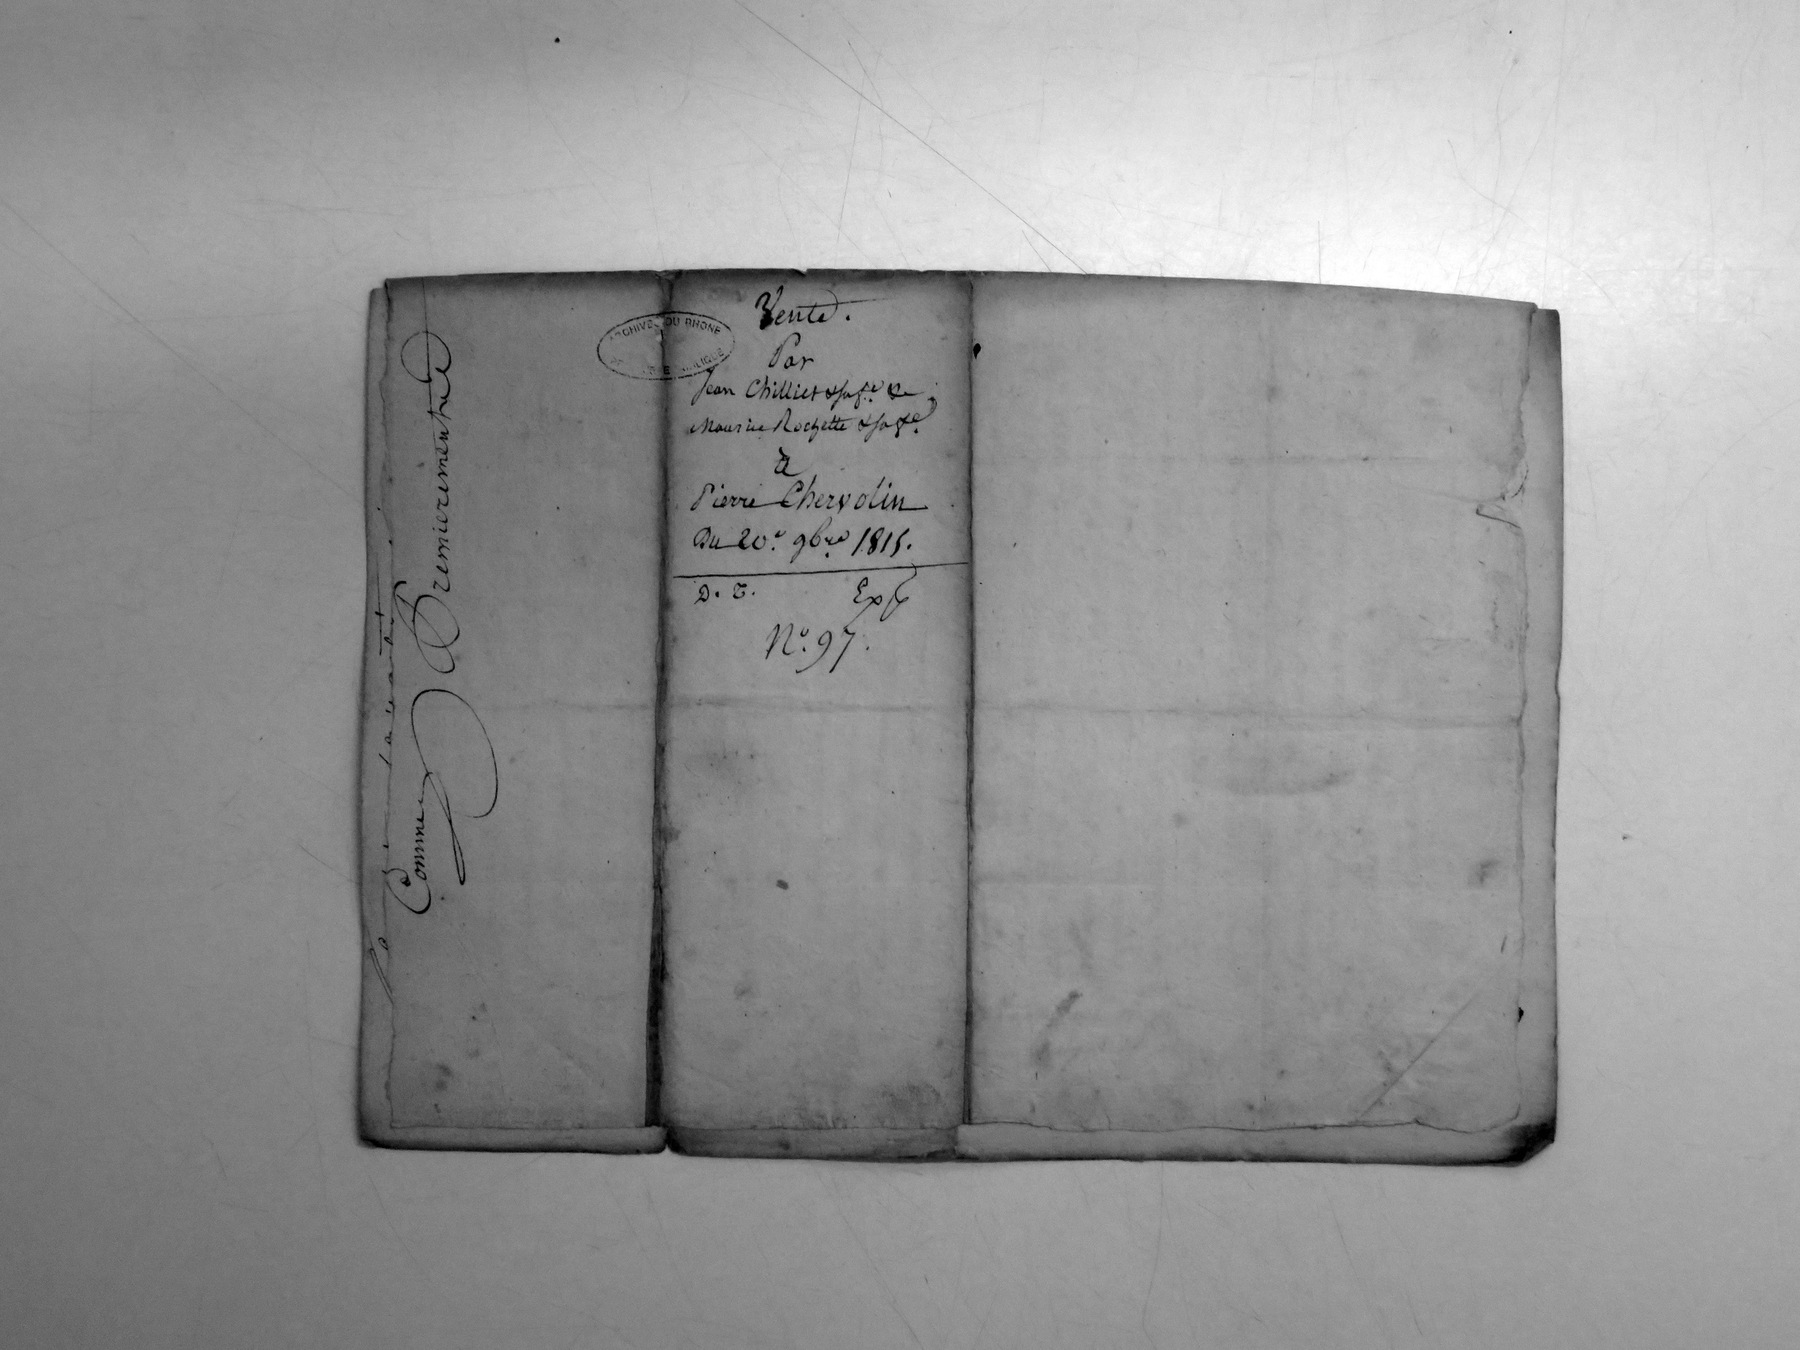 Vente.
Par
Jean Chilliet & sa fe. &
Maurice Rochette & sa fe.
à
Pierre Chervolin
Du 20e. 9bre 1815.
D. T. Exp
No. 97.
ARCHIVES DU RHONE
Comme Premierementé